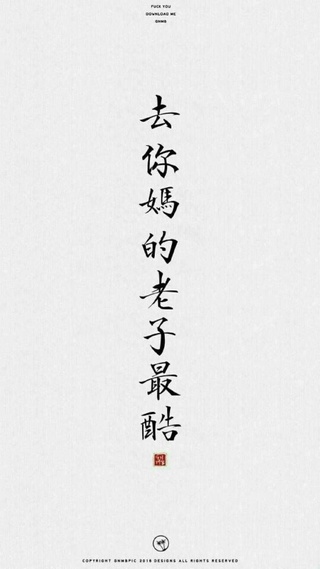 FUCK YOU
DOWNLOAD ME
DNMB
去你媽的老子最酷
COPYRIGHT DNMBPIC 2018 DESIGNS ALL RIGHTS RESERVED